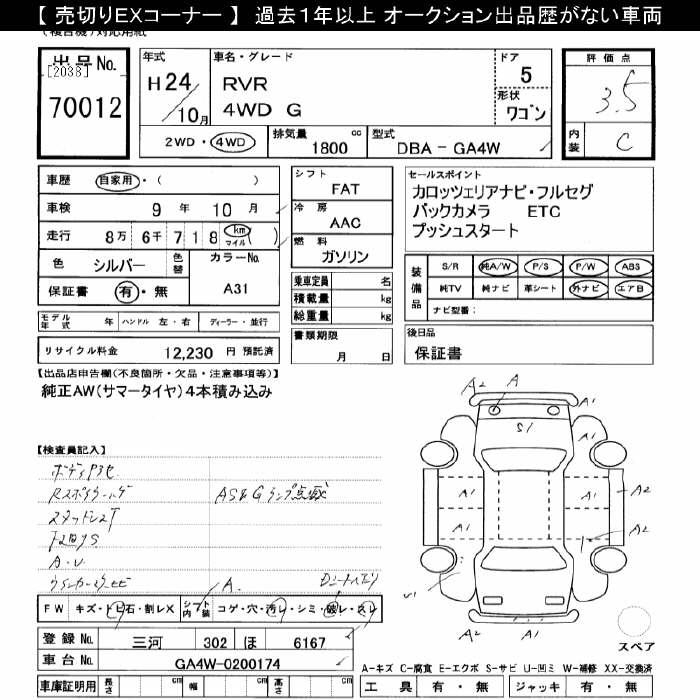 【 売切りEXコーナー 】 過去1年以上 オークション出品歴がない車両
出品No.
[2038]
70012
年式
H24
10月
車名・グレード
RVR
4WD G
ドア
5
形状
ワゴン
2WD・4WD
排気量
1800 cc
型式
DBA - GA4W
評価点
3.5
内装
C
車歴 自家用・( )
車検 9年 10月
走行 8万 6千 7 1 8 km マイル ( )
色 シルバー 色替 カラーNo.
A31
保証書 有・無
シフト
FAT
冷房
AAC
燃料
ガソリン
セールスポイント
カロッツェリアナビ・フルセグ
バックカメラ ETC
プッシュスタート
装備品
S/R 純A/W P/S P/W ABS
純TV 純ナビ 革シート 外ナビ エアB
ナビ型番:
モデル年式 年 ハンドル 左・右 ディーラー・並行
乗車定員 名
積載量 kg
総重量 kg
書類期限
月 日
後日品
保証書
リサイクル料金 12,230 円 預託済
【出品店申告欄(不良箇所・欠品・注意事項等)】
純正AW(サマータイヤ)4本積み込み
【検査員記入】
ASG ランプ点滅
A.
FW キズ・トビ石・割レX シート内装 コゲ・穴・汚レ・シミ・破レ・スレ
登録No. 三河 302 ほ 6167
車台No. GA4W-0200174
車庫証明用 長さ cm 幅 cm 高さ cm
A2
A
A1
S1
A1
A1
A1
A1
A2
A1
A1
A2
A1
A2
スペア
A-キズ C-腐食 E-エクボ S-サビ U-凹ミ W-補修 XX-交換済
工具 有・無 ジャッキ 有・無